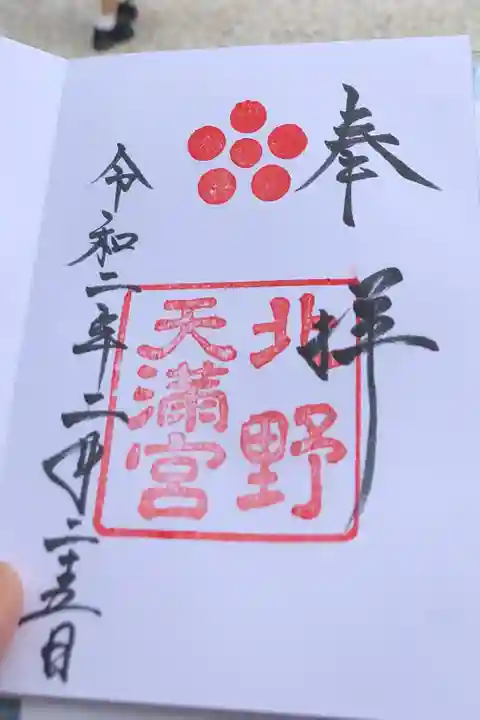 奉拝
北野
天満宮
令和二年三月二十五日